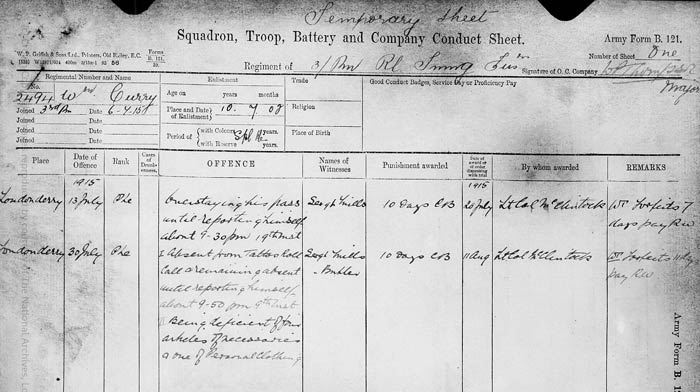 Temporary Sheet
Squadron, Troop, Battery and Company Conduct Sheet.
Army Form B. 121.
W. P. Griffith & Sons Ltd., Printers, Old Bailey, E.C.
Forms B. 121.
Number of Sheet One
Regiment of 3/Rn Rl Innis Fus
Signature of O. C. Company
Major
Regimental Number and Name
Enlistment
Trade
Good Conduct Badges, Service Pay or Proficiency Pay
No. 2494 Wm Curry
Age on years months
Joined 3rd Bn Date 6-7-15
Joined Date
Joined Date
Joined Date
Place and Date of Enlistment 10. 7 08
Religion
Period of with Colours years.
with Reserve years.
Place of Birth
Place
Date of Offence
Rank
Cases of Drunkenness
OFFENCE
Names of Witnesses
Punishment awarded
Date of award or of order dispensing with trial
By whom awarded
REMARKS
1915
1915
Londonderry 13 July Pte Overstaying his pass Sergt Mills 10 Days CB 20 July Lt Col McClintock Forfeits 7
until reporting himself days pay RW
about 9-30 pm 19th inst
Londonderry 30 July Pte 1 Absent from Tattoo roll Sergt Mills 10 days CB 11 Aug Lt Col McClintock Forfeits 11 days
call & remaining absent " Butler Pay RW
until reporting himself
about 9-50 pm 9th inst
2 Being deficient of
articles of necessaries
& one of Personal Clothing
Army Form B. 1
National Archives,